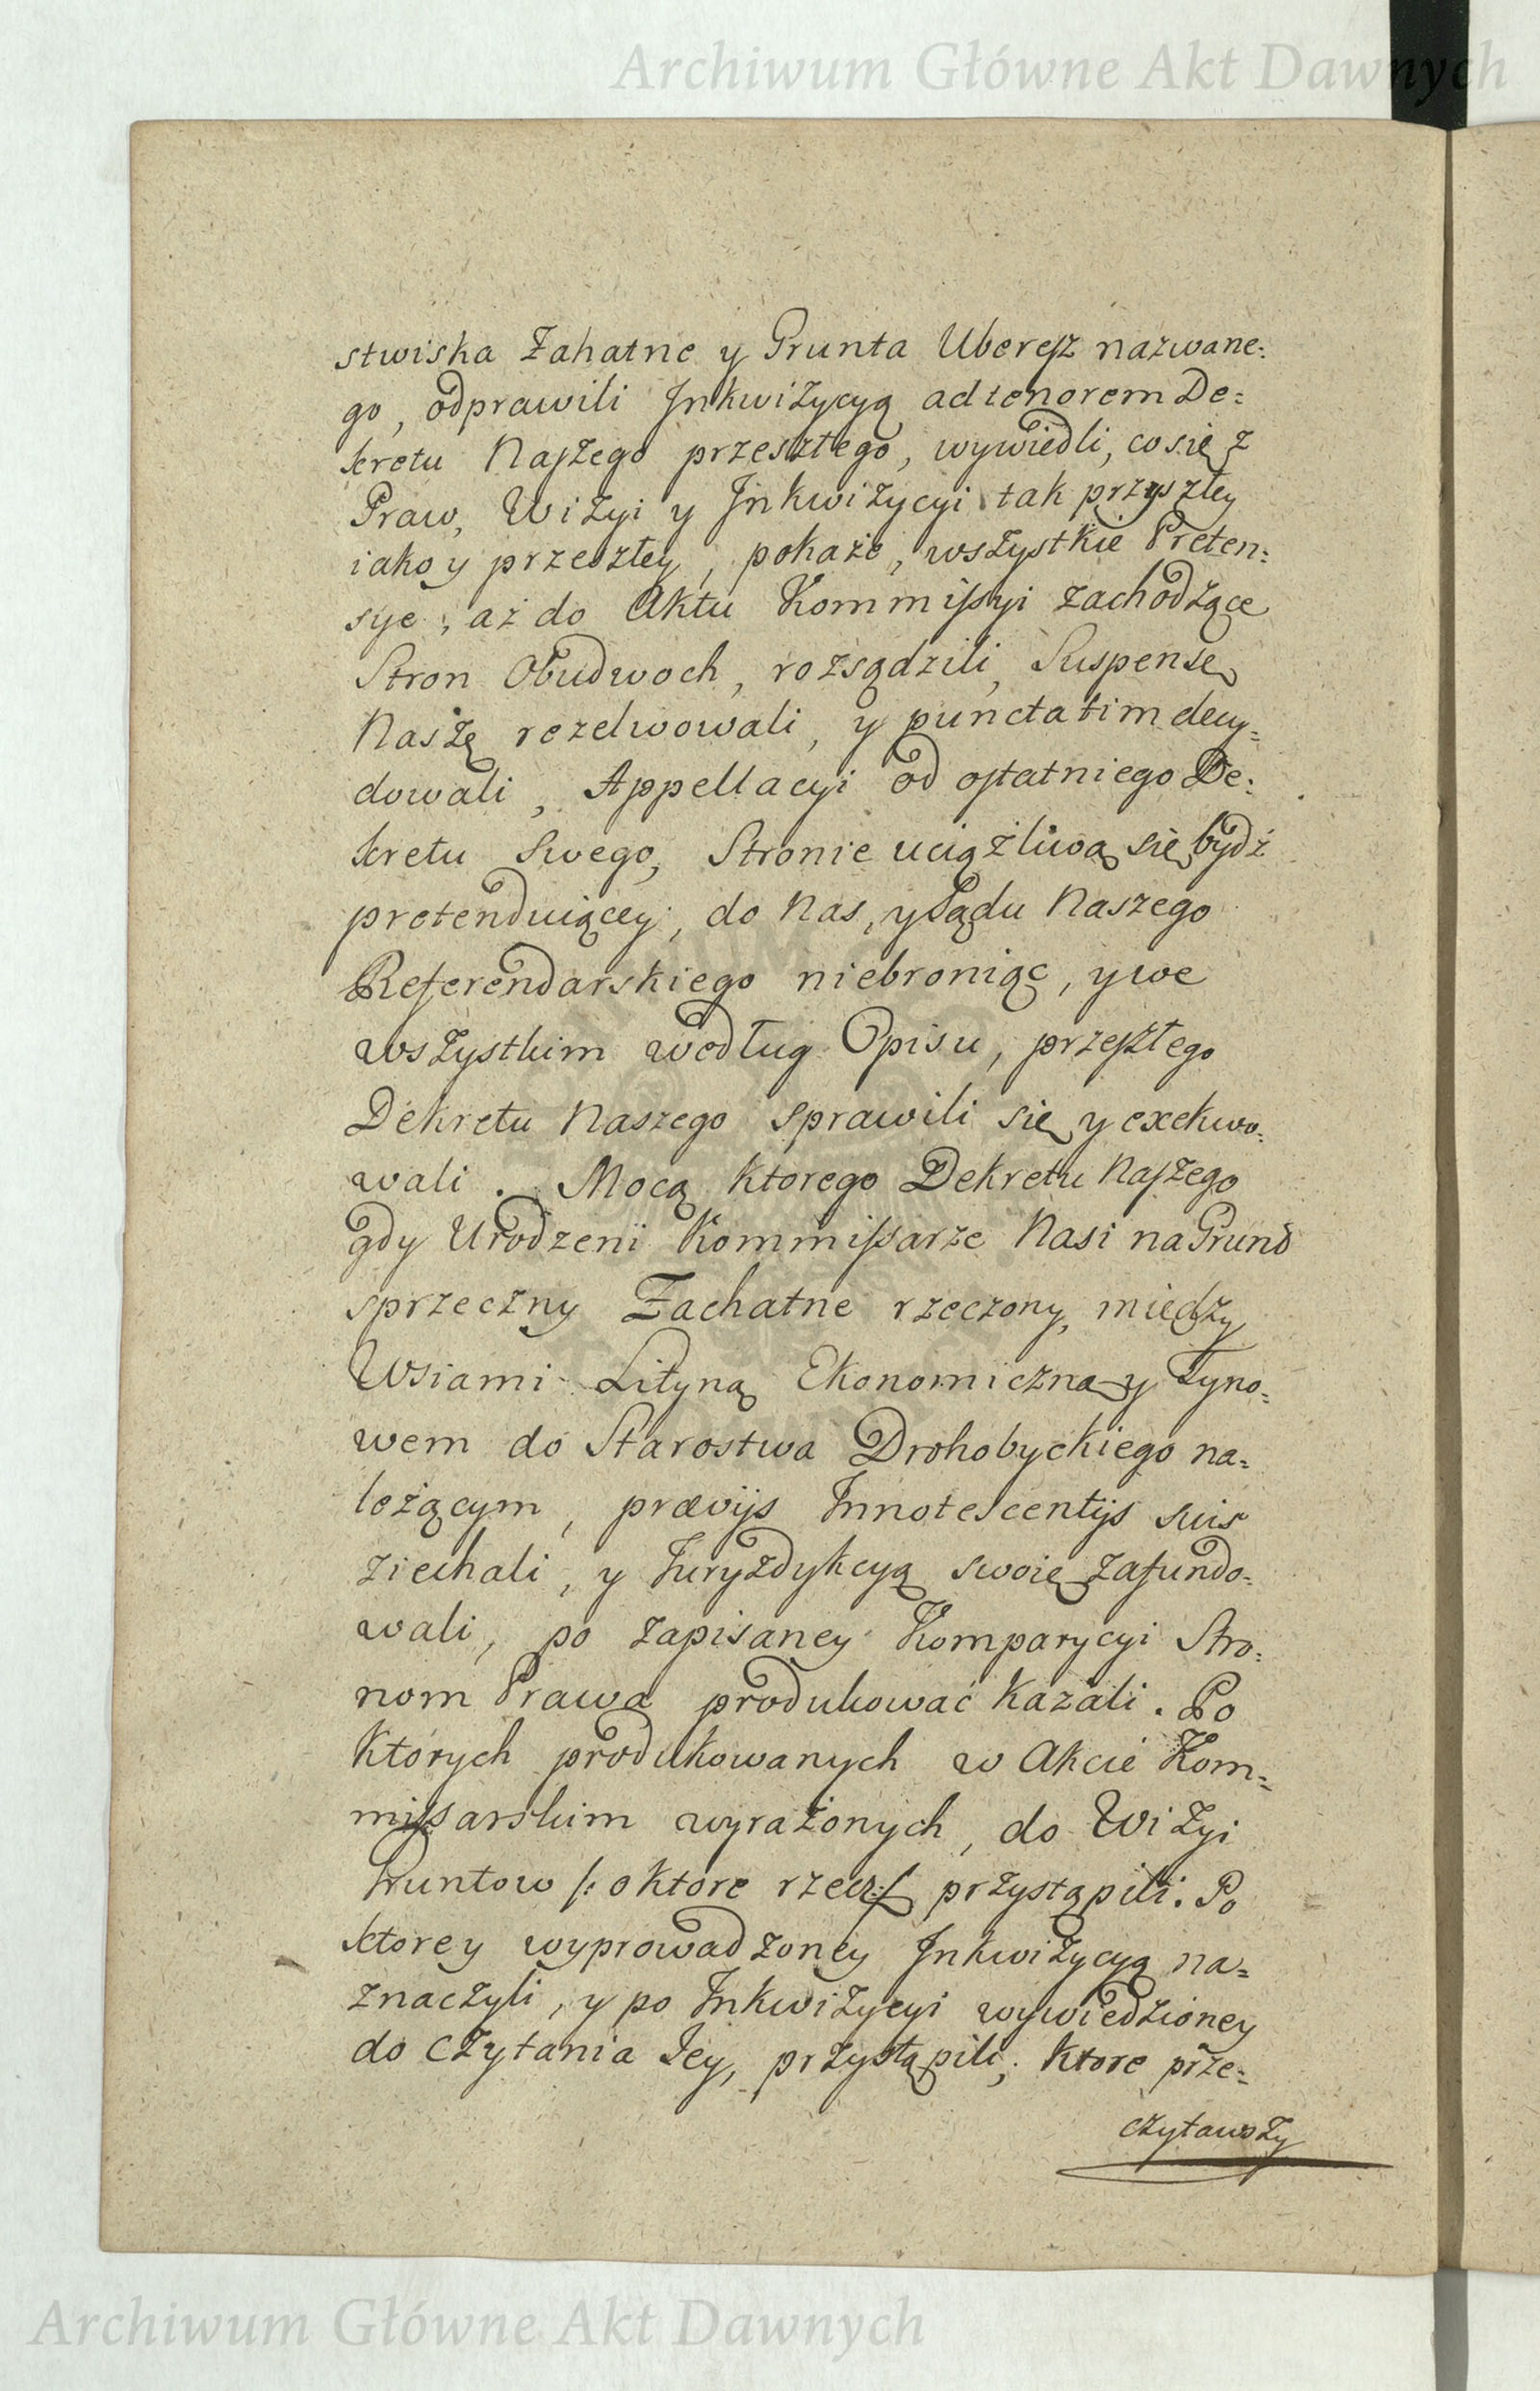 Archiwum Główne Akt Dawnych
stwiska Zahatne y Grunta Uberesz nazwane:
go, odprawili Inkwizycyą ad tenorem De:
kretu Naszego przeszłego, wywiedli, co się z
Praw, Wizyi y Inkwizycyi tak przyszłey
iako y przeszłey, pokaże, wszystkie Preten:
sye, aż do Aktu Kommissyi zachodzące
Stron Obudwoch, rozsądzili, Suspensę
Naszę rezelwowali, y punctatim decy:
dowali, Appellacyi od ostatniego De:
kretu Swego, Stronie uciążliwą się bydź
pretenduiącey, do Nas, y Sądu Naszego
Referendarskiego niebroniąc, y we
wszystkim według Opisu, przeszłego
Dekretu Naszego sprawili się y exekwo:
wali. Mocą ktorego Dekretu Naszego
gdy Urodzeni Kommissarze Nasi na Grund
sprzeczny Zachatne rzeczony, między
Wsiami Lityną Ekonomiczną y Łyno:
wem do Starostwa Drohobyckiego na:
leżącym, prævijs Innotescentijs suis
ziechali, y Juryzdykcyą swoię zafundo:
wali, po zapisaney Komparycyi Stro:
nom Prawa produkować kazali. Po
ktorych produkowanych w Akcie Kom:
missarskim wyrażonych, do Wizyi
Gruntow /: o ktore rzecz :/ przystąpili. Po
ktorey wyprowadzoney Inkwizycyą na:
znaczyli, y po Inkwizycyi wywiedzioney
do czytania Iey, przystąpili; ktore prze:
czytawszy
Archiwum Główne Akt Dawnych